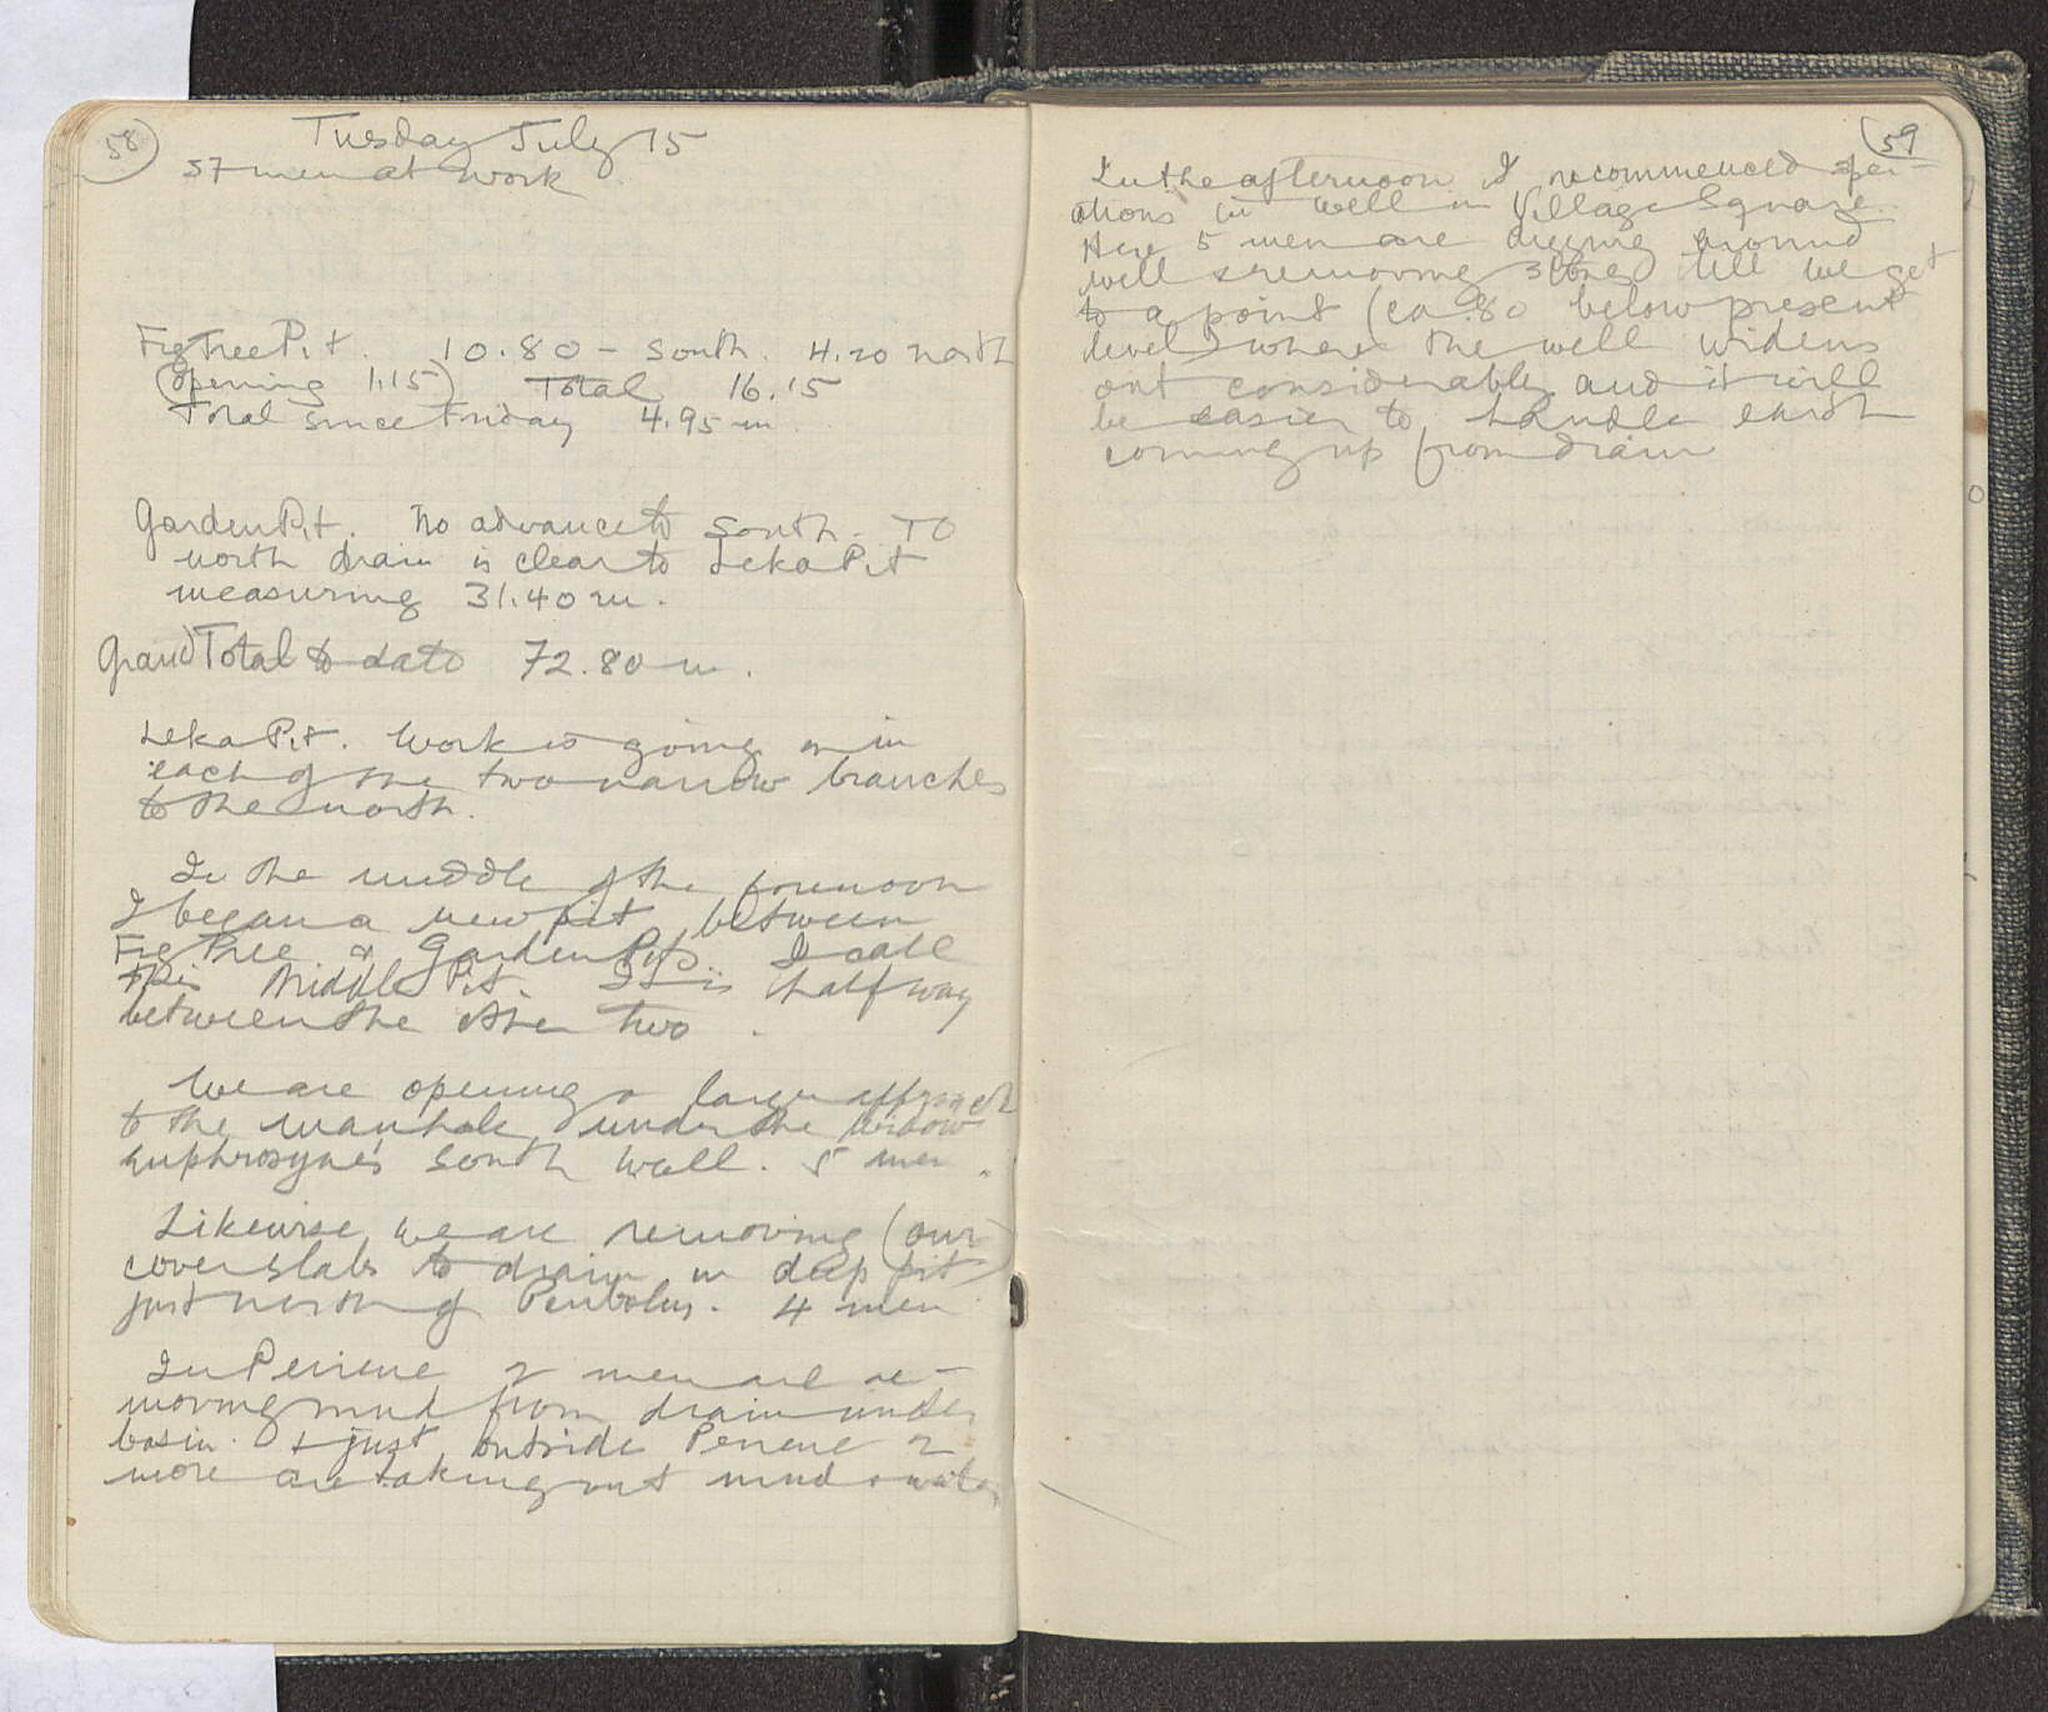 58
Tuesday July 15
57 men at work
Fig Tree Pit. 10.80 - South. 4.20 north
(opening 1.15) Total 16.15
Total since Friday 4.95 m.
Garden Pit. No advance to south. To
north drain is clear to Leka Pit
measuring 31.40 m.
Grand Total to date 72.80 m.
Leka Pit. Work is going on in
each of the two narrow branches
to the north.
In the middle of the forenoon
I began a new pit between
Fig Tree & Garden Pits. I call
this Middle Pit. It is half way
between the other two.
We are opening a larger approach
to the manhole under the widow
Euphrosyne's south wall. 5 men.
Likewise we are removing (our
cover slabs to drain in deep pit)
just north of Peribolus. 4 men
In Peirene 2 men are re-
moving mud from drain under
basin. & just outside Peirene 2
more are taking out mud & water
59
In the afternoon I recommenced oper-
ations in well in Village Square.
Here 5 men are digging around
well & removing stones till we get
to a point (ca .80 below present
level) where the well widens
out considerably and it will
be easier to handle earth
coming up from drain